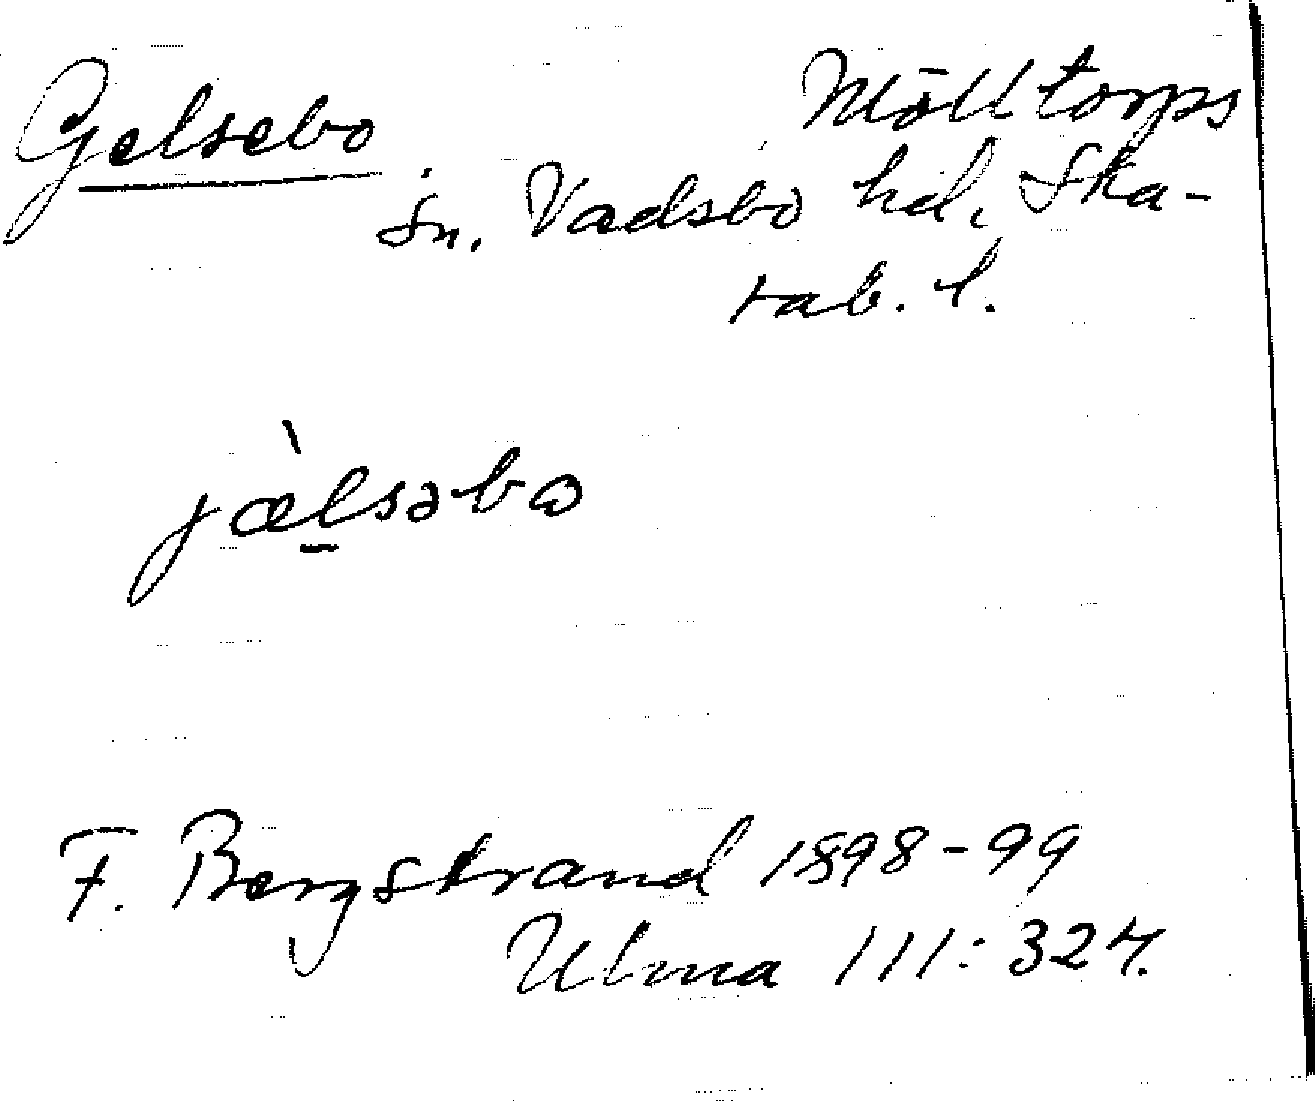 Gelsebo. Mölltorps
sn. Vadsbo hd, Ska-
rab. l.
jæ̀l̠səbω
F. Bergstrand 1898-99
Ulma 111:324.